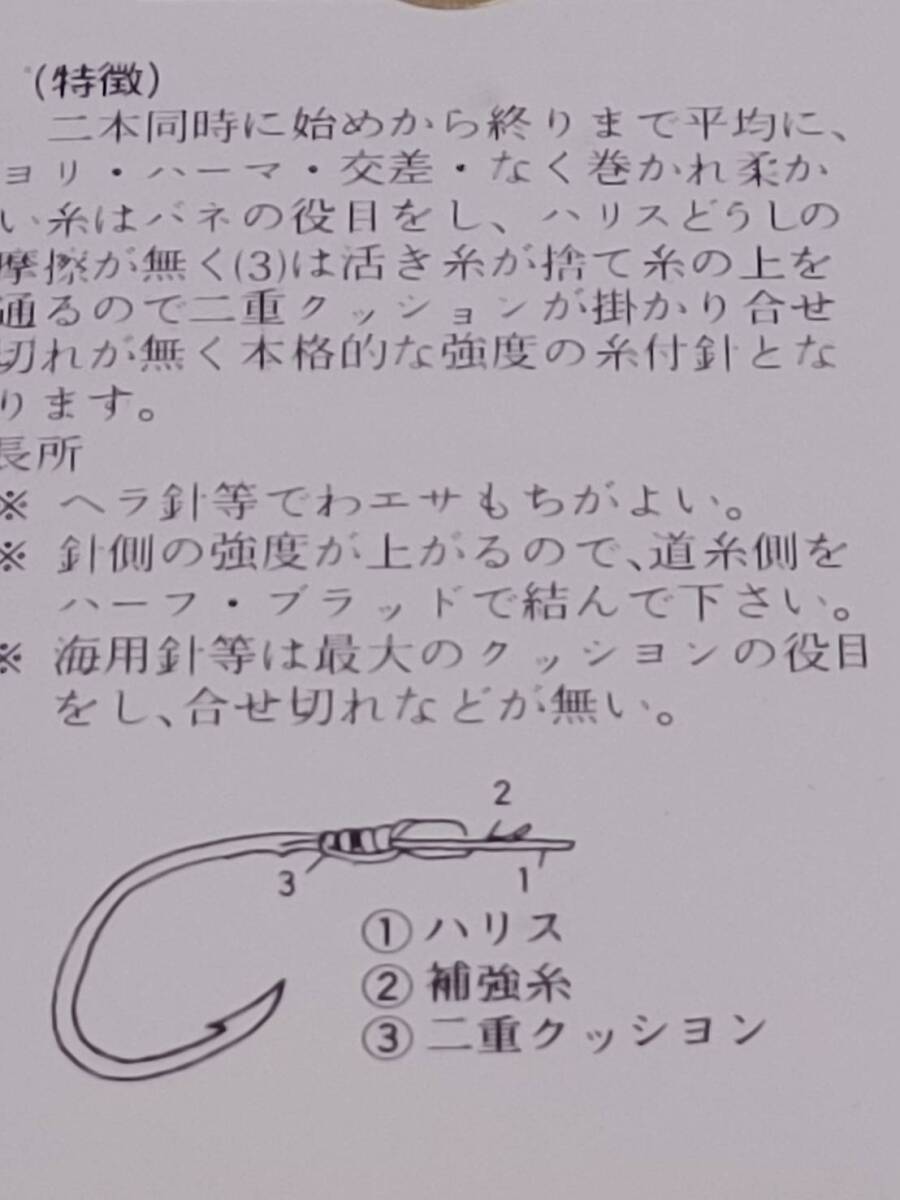 (特徴)
二本同時に始めから終りまで平均に、
ョリ・ハーマ・交差・なく巻かれ柔か
い糸はバネの役目をし、ハリスどうしの
摩擦が無く(3)は活き糸が捨て糸の上を
通るので二重クッションが掛かり合せ
切れが無く本格的な強度の糸付針とな
ります。
長所
※ ヘラ針等でわエサもちがよい。
※ 針側の強度が上がるので、道糸側を
ハーフ・ブラッドで結んで下さい。
※ 海用針等は最大のクッションの役目
をし、合せ切れなどが無い。
2
3
1
①ハリス
②補強糸
③二重クッション